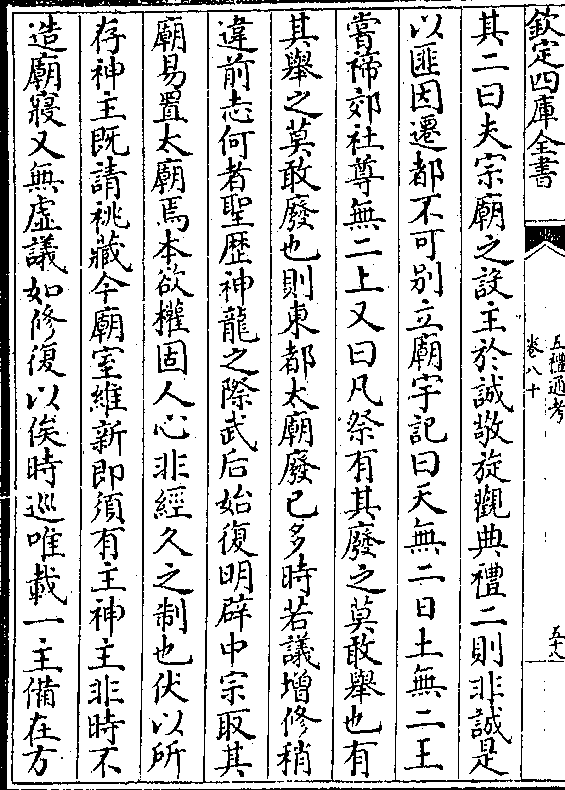 欽定四庫全書
五禮通考
卷八十
五十八
其二曰夫宗廟之設主於誠敬旋觀典禮二則非誠是
以匪因遷都不可别立廟宇記曰天無二日土無二王
嘗禘郊社尊無二上又曰凡祭有其廢之莫敢舉也有
其舉之莫敢廢也則東都太廟廢已多時若議增修稍
違前志何者聖歴神龍之際武后始復明辟中宗取其
廟易置太廟焉本欲權固人心非經久之制也伏以所
存神主既請祧藏今廟室維新即須有主神主非時不
造廟寢又無虚議如修復以俟時巡唯載一主備在方